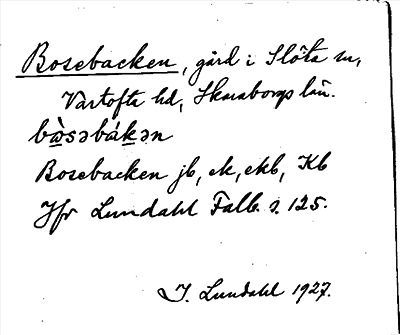 Bosebacken, gård i Slöta sn,
Vartofta hd, Skaraborgs län.
bὼsəbákən
Bosebacken jb, ek, ekb, Kb
Jfr Lundahl Falb. s. 125.
I. Lundahl 1927.